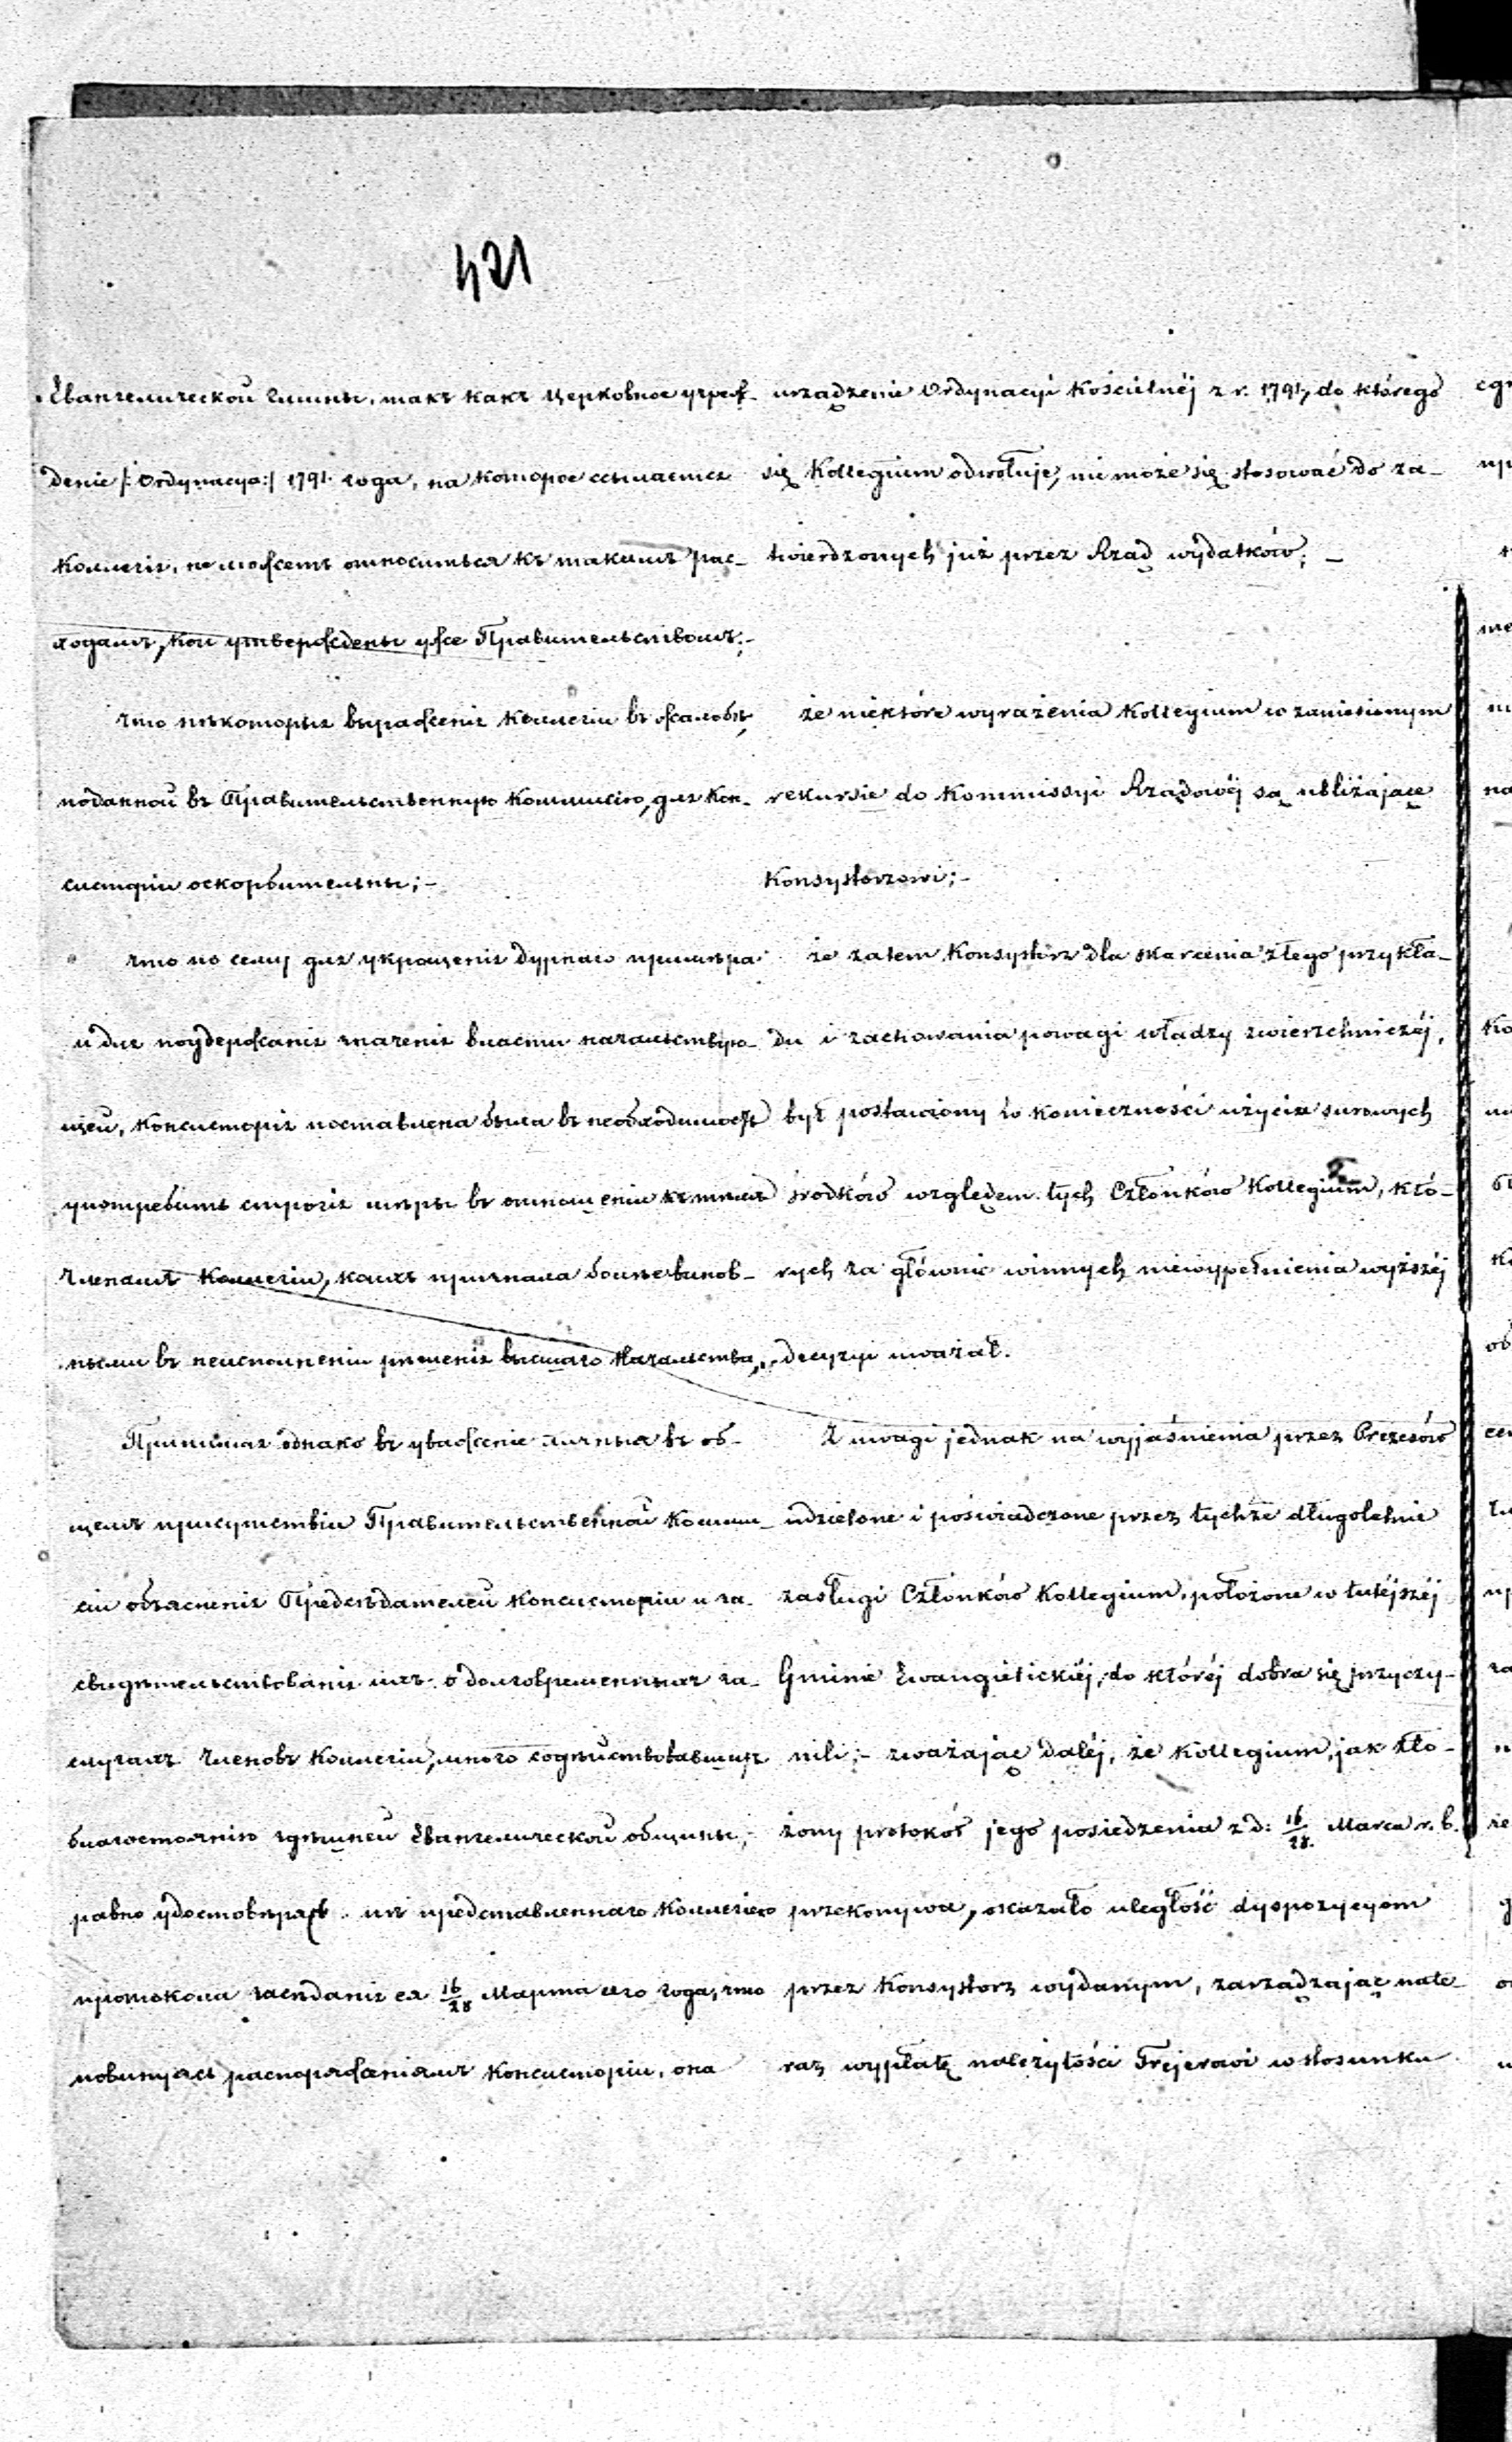 421
Евангелической Гмины, такъ какъ Церковное учреж-
деніе /:Ordynacya:/ 1791 года, на которое ссылается
Коллегія, не можетъ относиться къ такимъ рас-
ходамъ, кои утверждены уже Правительствомъ;-
что нѣкоторыя выраженія Коллегіи въ жалобѣ,
поданной въ Правительственную Коммисію, для Кон-
систоріи оскорбительны;-
что по сему для укрощенія дурнаго примѣра
и для поддержанія значенія власти начальствую-
щей, Консисторія поставлена была въ необходимость
употребить строгія мѣры въ отношеніи къ тѣмъ
Членамъ Коллегіи, коихъ признала болѣе винов-
ными въ неисполненіи рѣшенія высшаго Начальства,
Принимая однако въ уваженіе личныя въ об-
щемъ присутствіи Правительственной Комми-
сіи объясненія Предсѣдателей Консисторіи и за-
свидѣтельствованія ихъ о долговременныхъ за-
слугахъ Членовъ Коллегіи, много содѣйствовавшихъ
благостоянію здѣшней Евангелической общины;
равно удостовѣрясь изъ представленнаго Коллегіею
протокола засѣданія ея 16/28 Марта сего года, что
повинуясь распоряженіямъ Консисторіи, она
urządzenie Ordynacyi Kościelnéj z r. 1791, do którego
się Kollegium odwołuje, nie może się stosować do za-
twierdzonych już przez Rząd wydatków; –
że niektóre wyrażenia Kollegium w zaniesionym
rekursie do Kommissyi Rządowéj są ubliżające
Konsystorzowi;-
że zatem Konsystorz dla skarcenia złego przykła-
du i zachowania powagi władzy zwierzchniczéj,
był postawiony w konieczności użycia surowych
środków względem tych Członków Kollegium, któ-
rych za głównie winnych niewypełnienia wyższéj
decyzyi uważał.
Z uwagi jednak na wyjaśnienia przez Prezesów
udzielone i poświadczone przez tychże długoletnie
zasługi Członków Kollegium, położone w tutéjszéj
Gminie Ewangielickiéj, do któréj dobra się przyczy-
nili;- zważając daléj, że Kollegium, jak zło-
żony protokół jego posiedzenia z d: 16/28. Marca r. b.
przekonywa, okazało uległość dyspozycyom
przez Konsystorz wydanym, zarządzając nate-
raz wypłatę należytości Frejerowi w stosunku